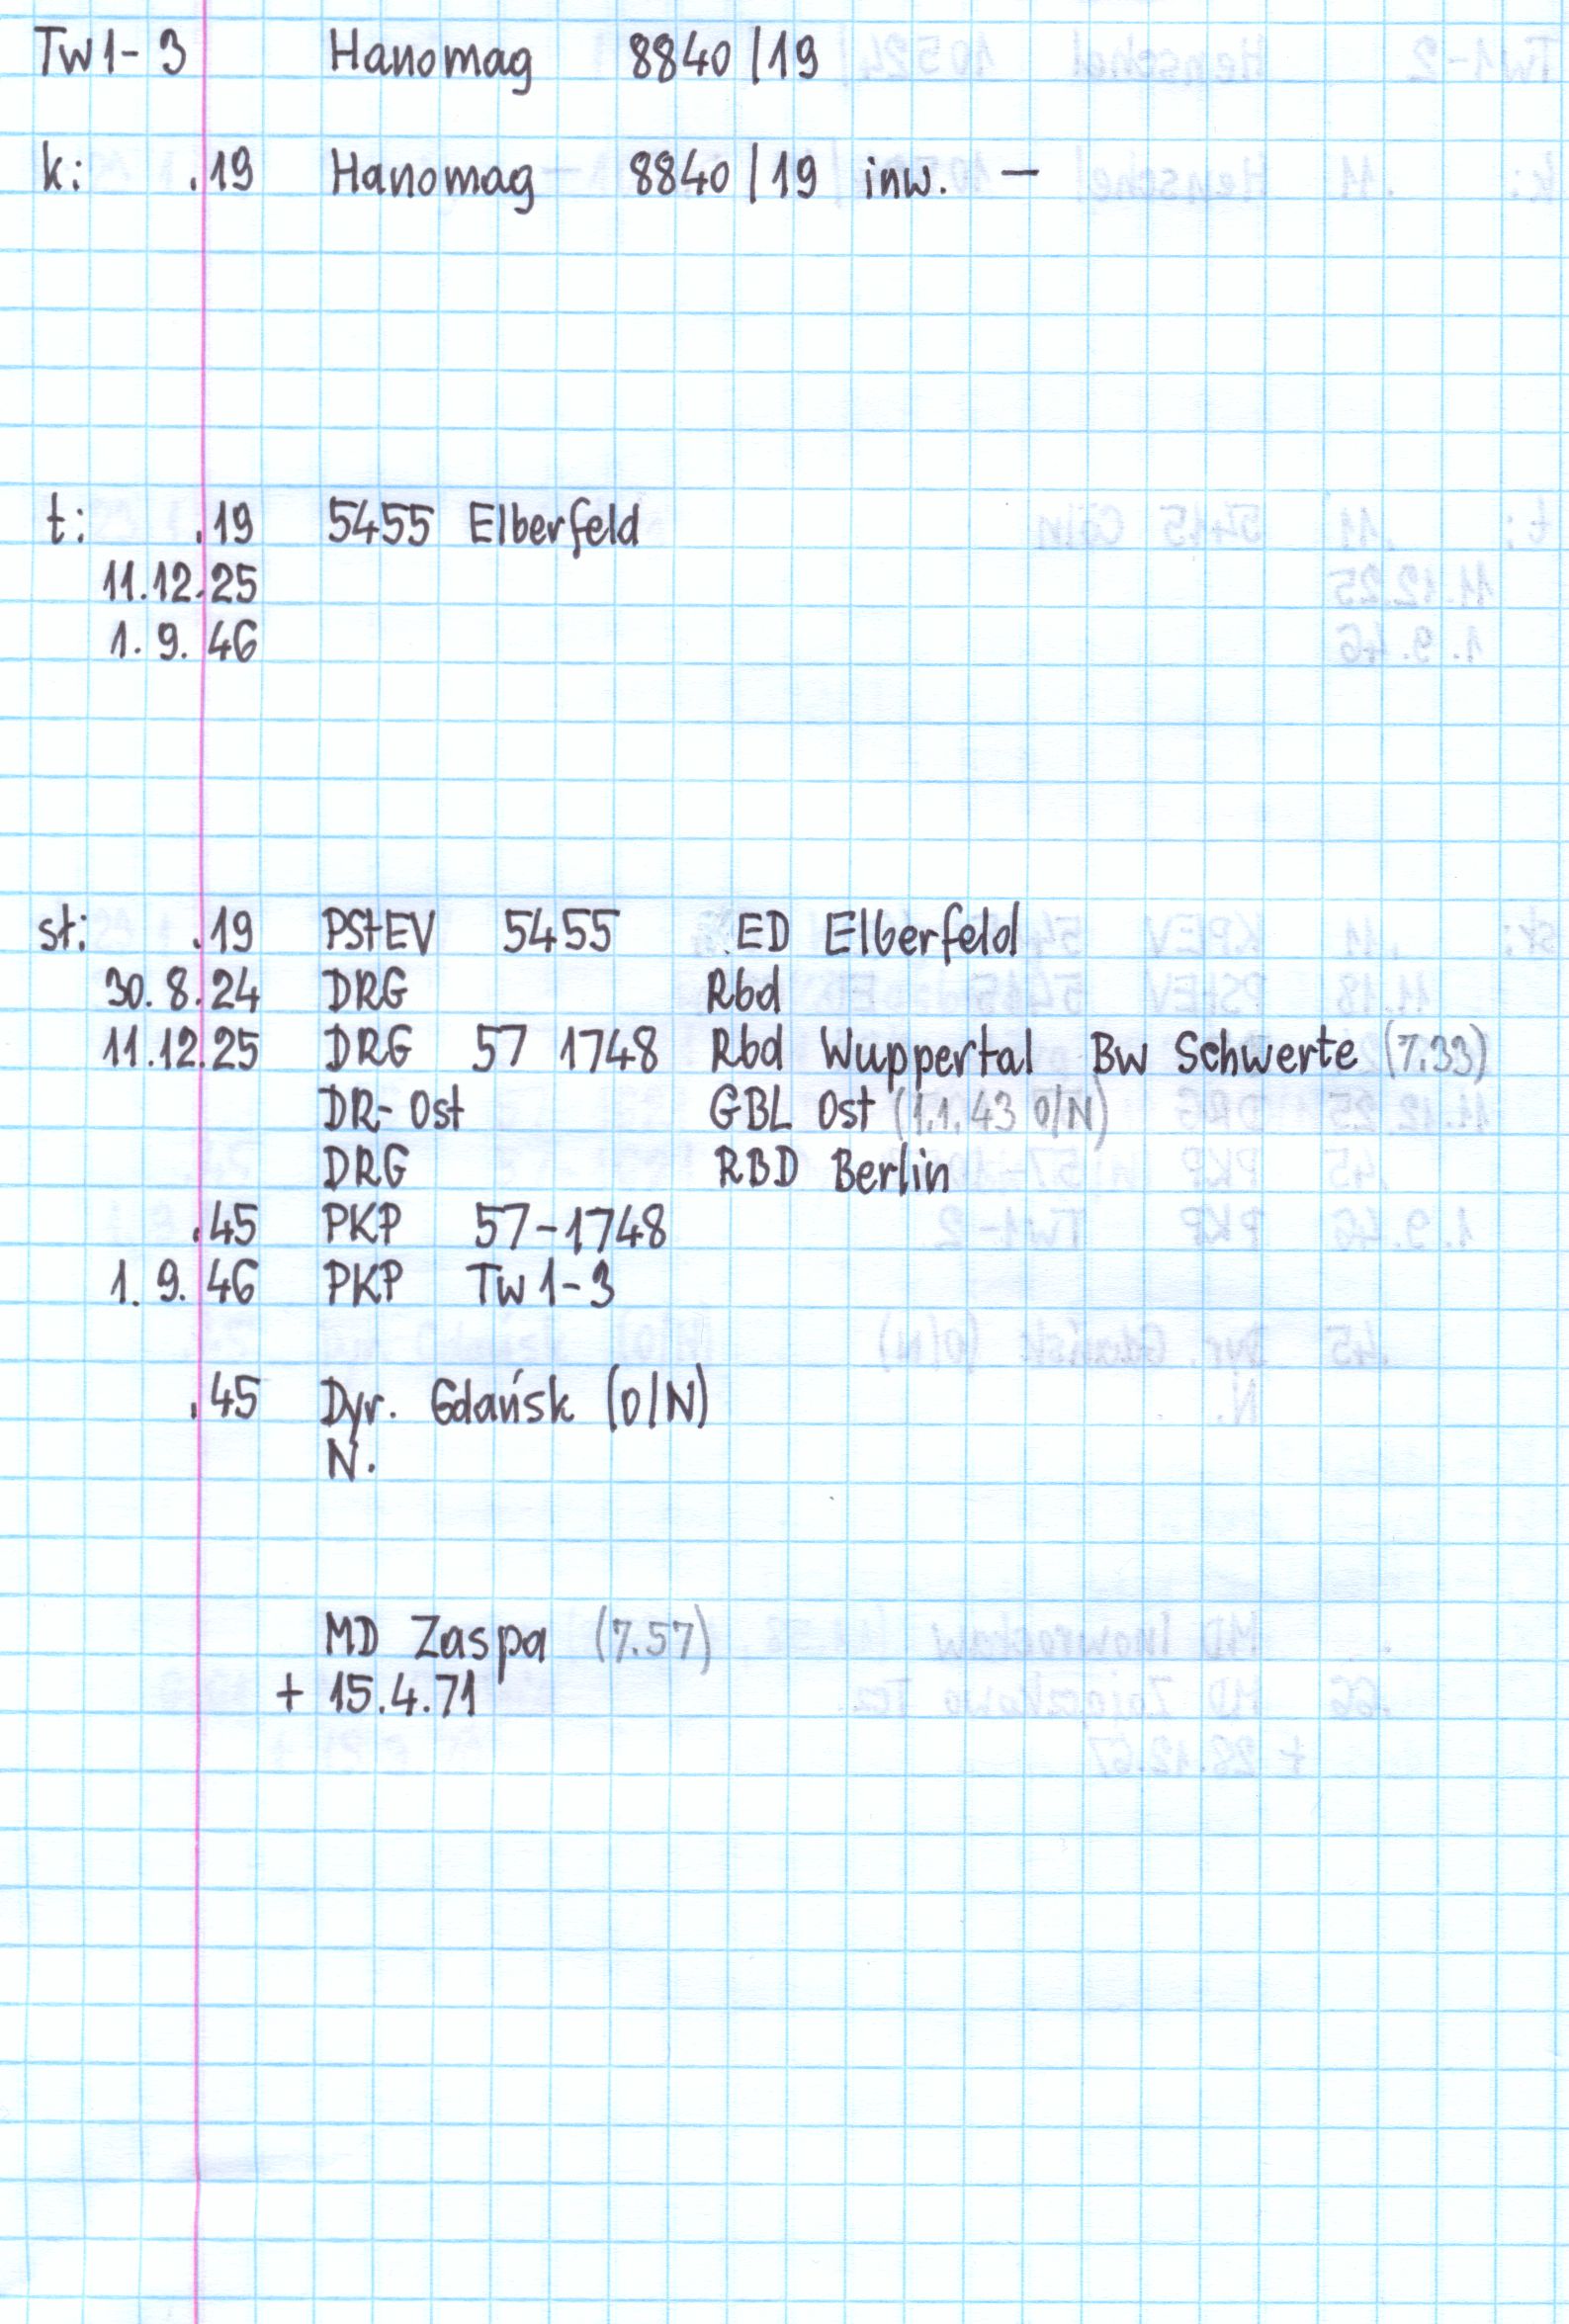 Tw1-3 Hanomag 8840/19
k: .19 Hanomag 8840/19 inw. —
t: .19 5455 Elberfeld
11.12.25
1.9.46
st: .19 PStEV 5455 ED Elberfeld
30.8.24 DRG Rbd
11.12.25 DRG 57 1748 Rbd Wuppertal Bw Schwerte (7.33)
DR-Ost GBL Ost (1.1.43 O/N)
DRG RBD Berlin
.45 PKP 57-1748
1.9.46 PKP Tw1-3
.45 Dyr. Gdańsk (O/N)
N.
MD Zaspa (7.57)
+ 15.4.71